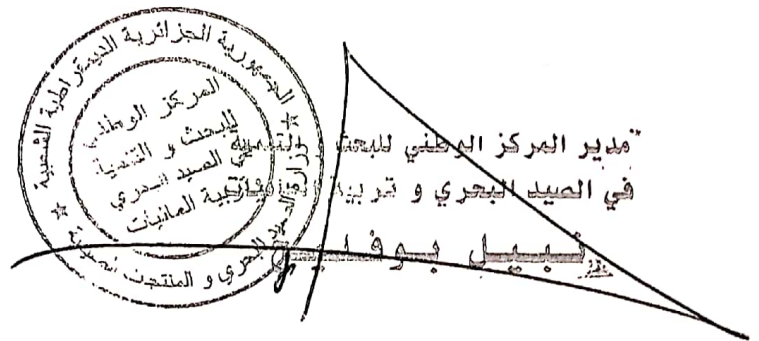 الجمهورية الجزائرية الديمقراطية الشعبية
وزارة الصيد البحري و المنتجات الصيدية
المركز الوطني
للبحث و التنمية
في الصيد البحري
وتربية المائيات
مدير المركز الوطني للبحث والتنمية
في الصيد البحري و تربية المائيات
نبيل